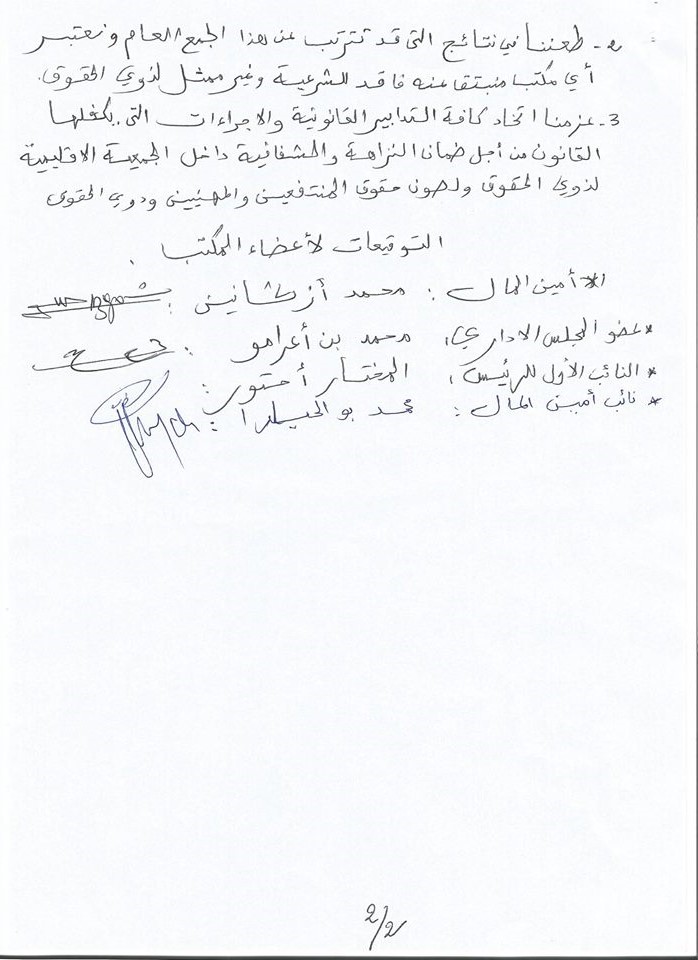 2- طعننا في نتائج التي قد تترتب عن هذا الجمع العام ونعتبر
أي مكتبا منبتقا عنه فاقد للشرعية وغير ممثل لذوي الحقوق.
3- عزمنا اتخاد كافة التدابير القانونية والاجراءات التي يكفلها
القانون من أجل ضمان النزاهة والشفافية داخل الجمعية الاقليمية
لذوي الحقوق ولصون حقوق المنتفعين والمهنيين ودوي الحقوق
التوقيعات لأعضاء المكتب
* أمين المال : محمد :
* عضو المجلس الاداري : محمد بن أعرامو :
* النائب الأول للرئيس : المختار :
* نائب أمين المال : محمد :
2/2